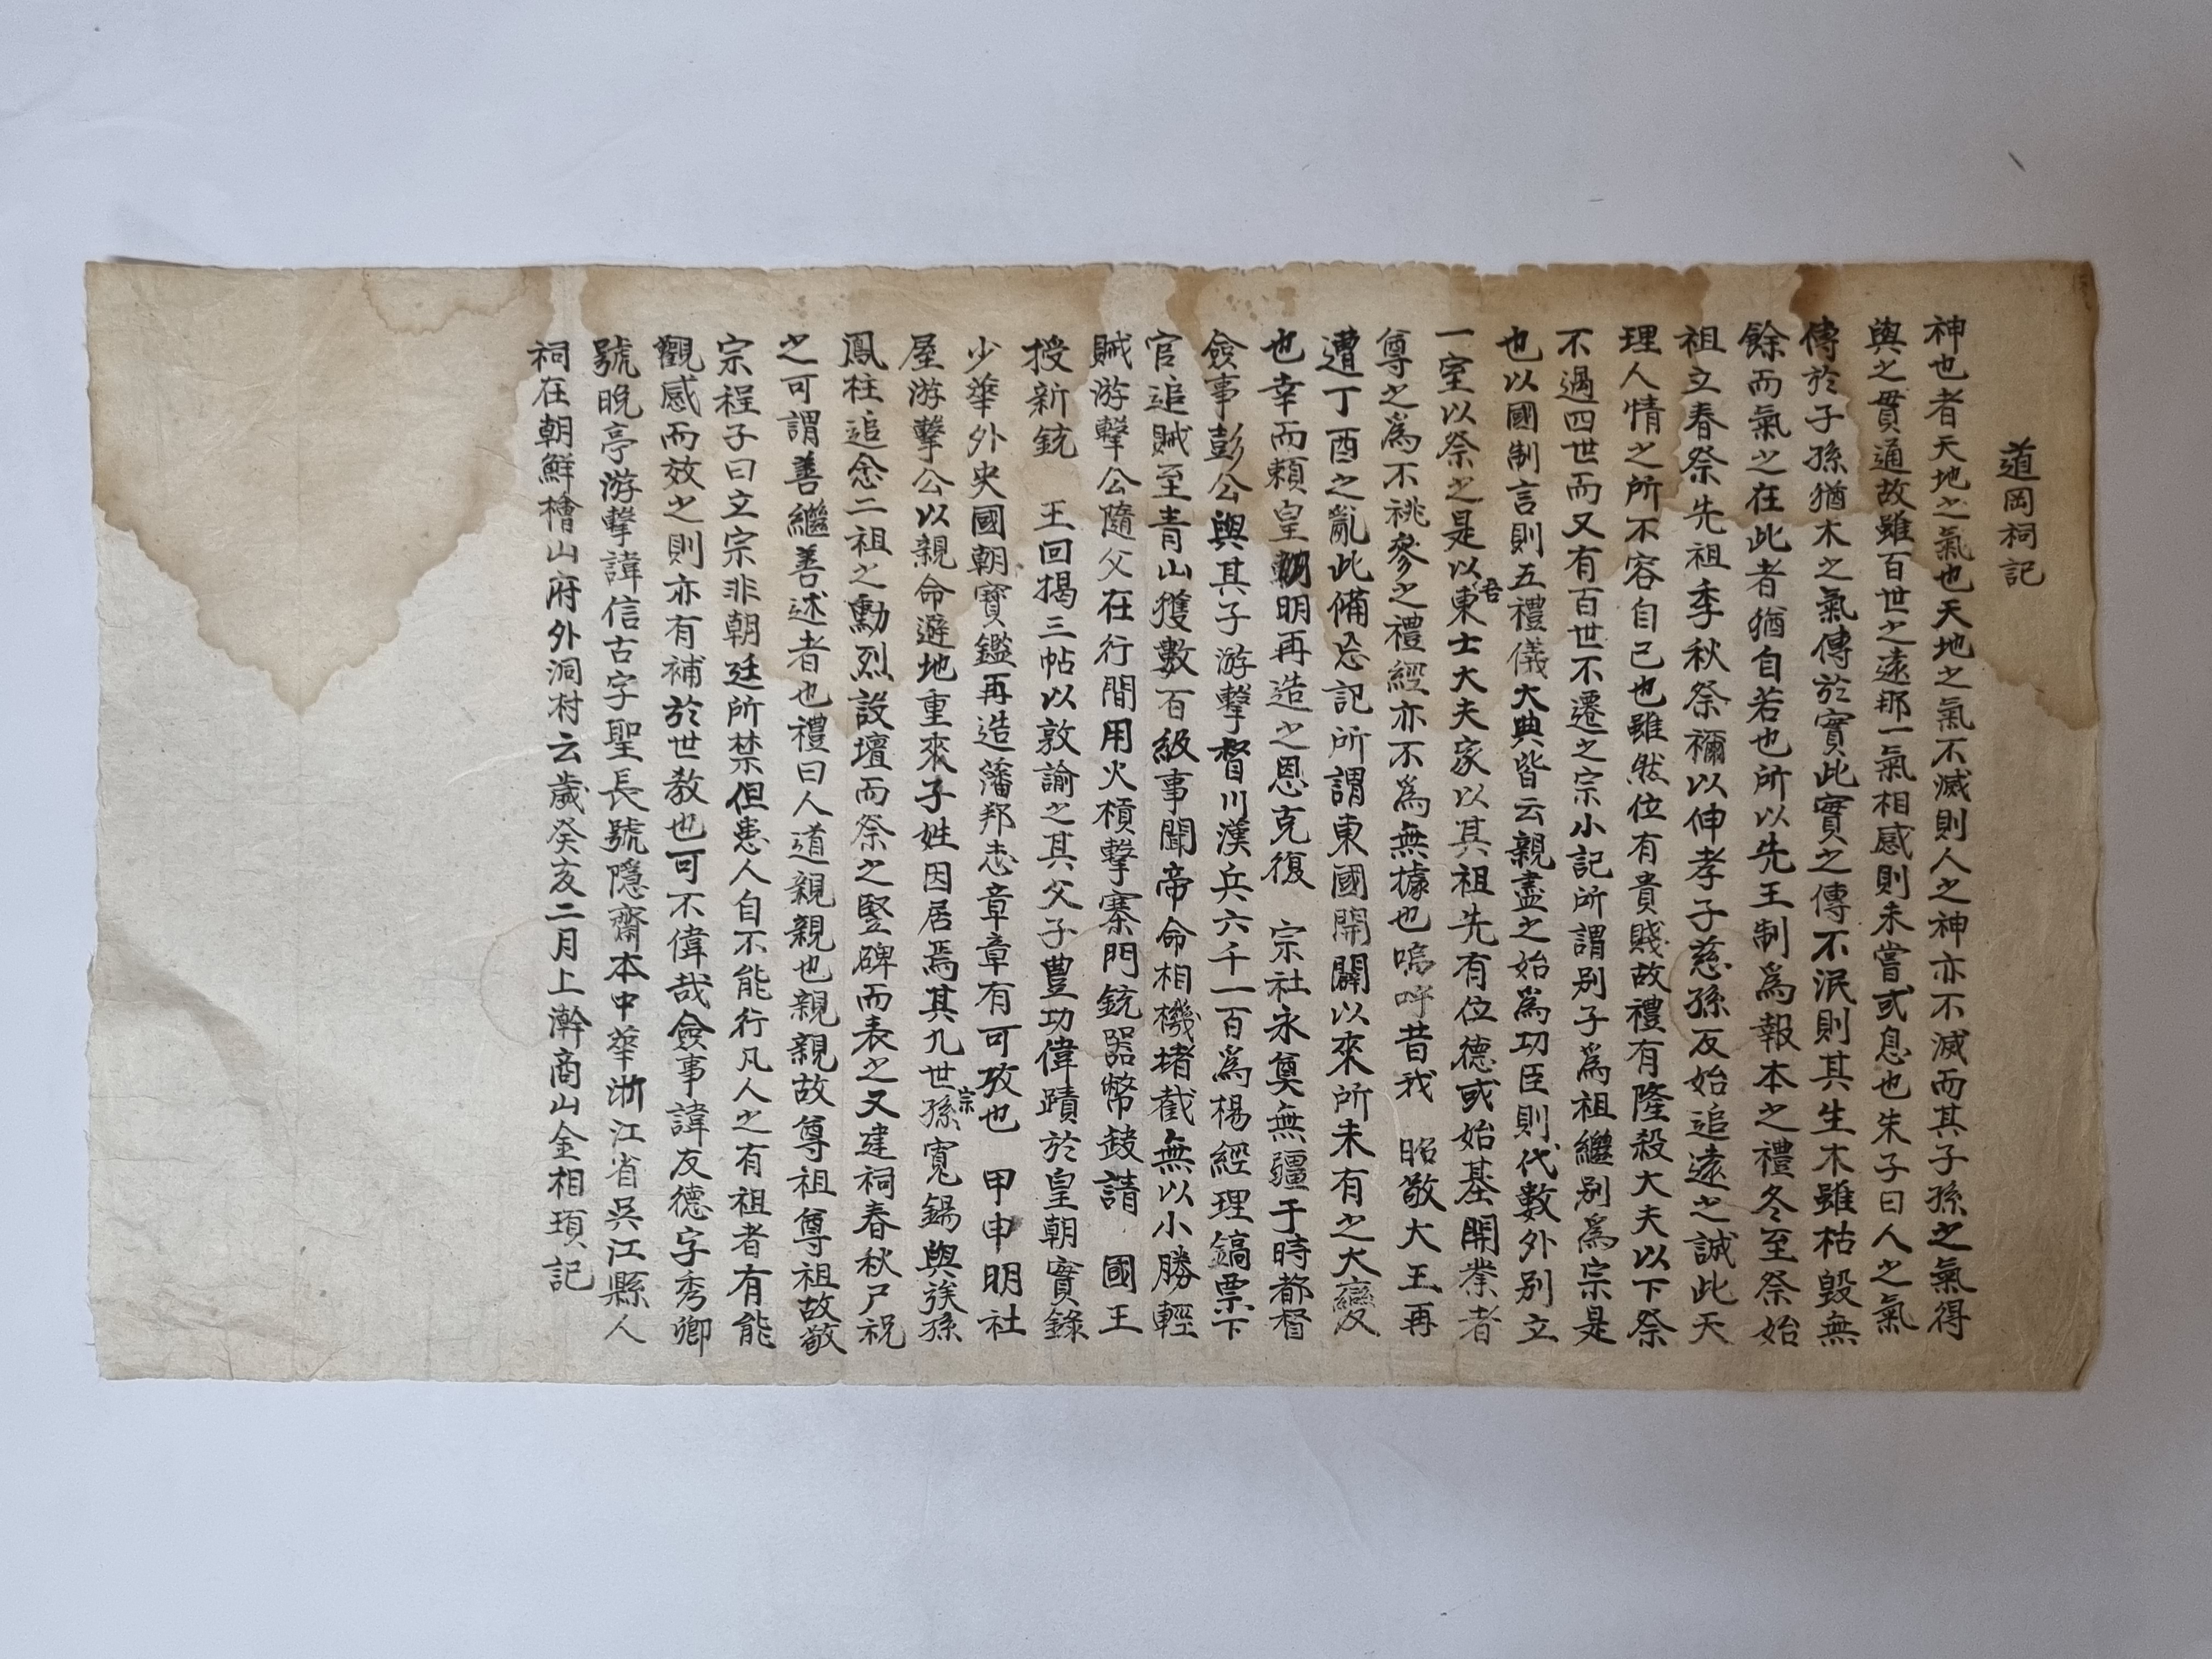 道岡祠記
神也者天地之氣也天地之氣不滅則人之神亦不滅而其子孫之氣得
與之貫通故雖百世之遠那一氣相感則未嘗或息也朱子曰人之氣
傳於子孫猶木之氣傳於實此實之傳不泯則其生木雖枯毀無
餘而氣之在此者猶自若也所以先王制爲報本之禮冬至祭始
祖立春祭先祖季秋祭禰以伸孝子慈孫反始追遠之誠此天
理人情之所不容自已也雖然位有貴賤故禮有隆殺大夫以下祭
不過四世而又有百世不遷之宗小記所謂別子爲祖繼別爲宗是
也以國制言則五禮儀大典皆云親盡之始爲功臣則代數外別立
一室以祭之是以吾東士大夫家以其祖先有位德或始基開業者
尊之爲不祧參之禮經亦不爲無據也嗚呼昔我 昭敬大王再
遭丁酉之亂此備忘記所謂東國開闢以來所未有之大變
也幸而賴皇朝明再造之恩克復 宗社永奠無疆于時都督
僉事彭公與其子游擊督川漢兵六千一百爲楊經理鎬票下
官追賊至青山獲數百級事聞帝命相機堵截無以小勝輕
賊游擊公隨父在行間用火槓擊寨門銃器幣鼓請 國王
授新銃 王回揭三帖以敦諭之其父子豊功偉蹟於皇朝實錄
少華外史國朝寶鑑再造藩邦志章章有可攷也 甲申明社
屋游擊公以親命避地重來子姓因居焉其九世宗孫寬錫與族孫
鳳柱追念二祖之勳烈設壇而祭之竪碑而表之又建祠春秋尸祝
之可謂善繼善述者也禮曰人道親親也親親故尊祖尊祖故敬
宗程子曰立宗非朝廷所禁但患人自不能行凡人之有祖者有能
觀感而效之則亦有補於世教也可不偉哉僉事諱友德字秀卿
號晩亭游擊諱信古字聖長號隱齋本中華浙江省吳江縣人
祠在朝鮮檜山府外洞村云歲癸亥二月上澣商山金相頊記